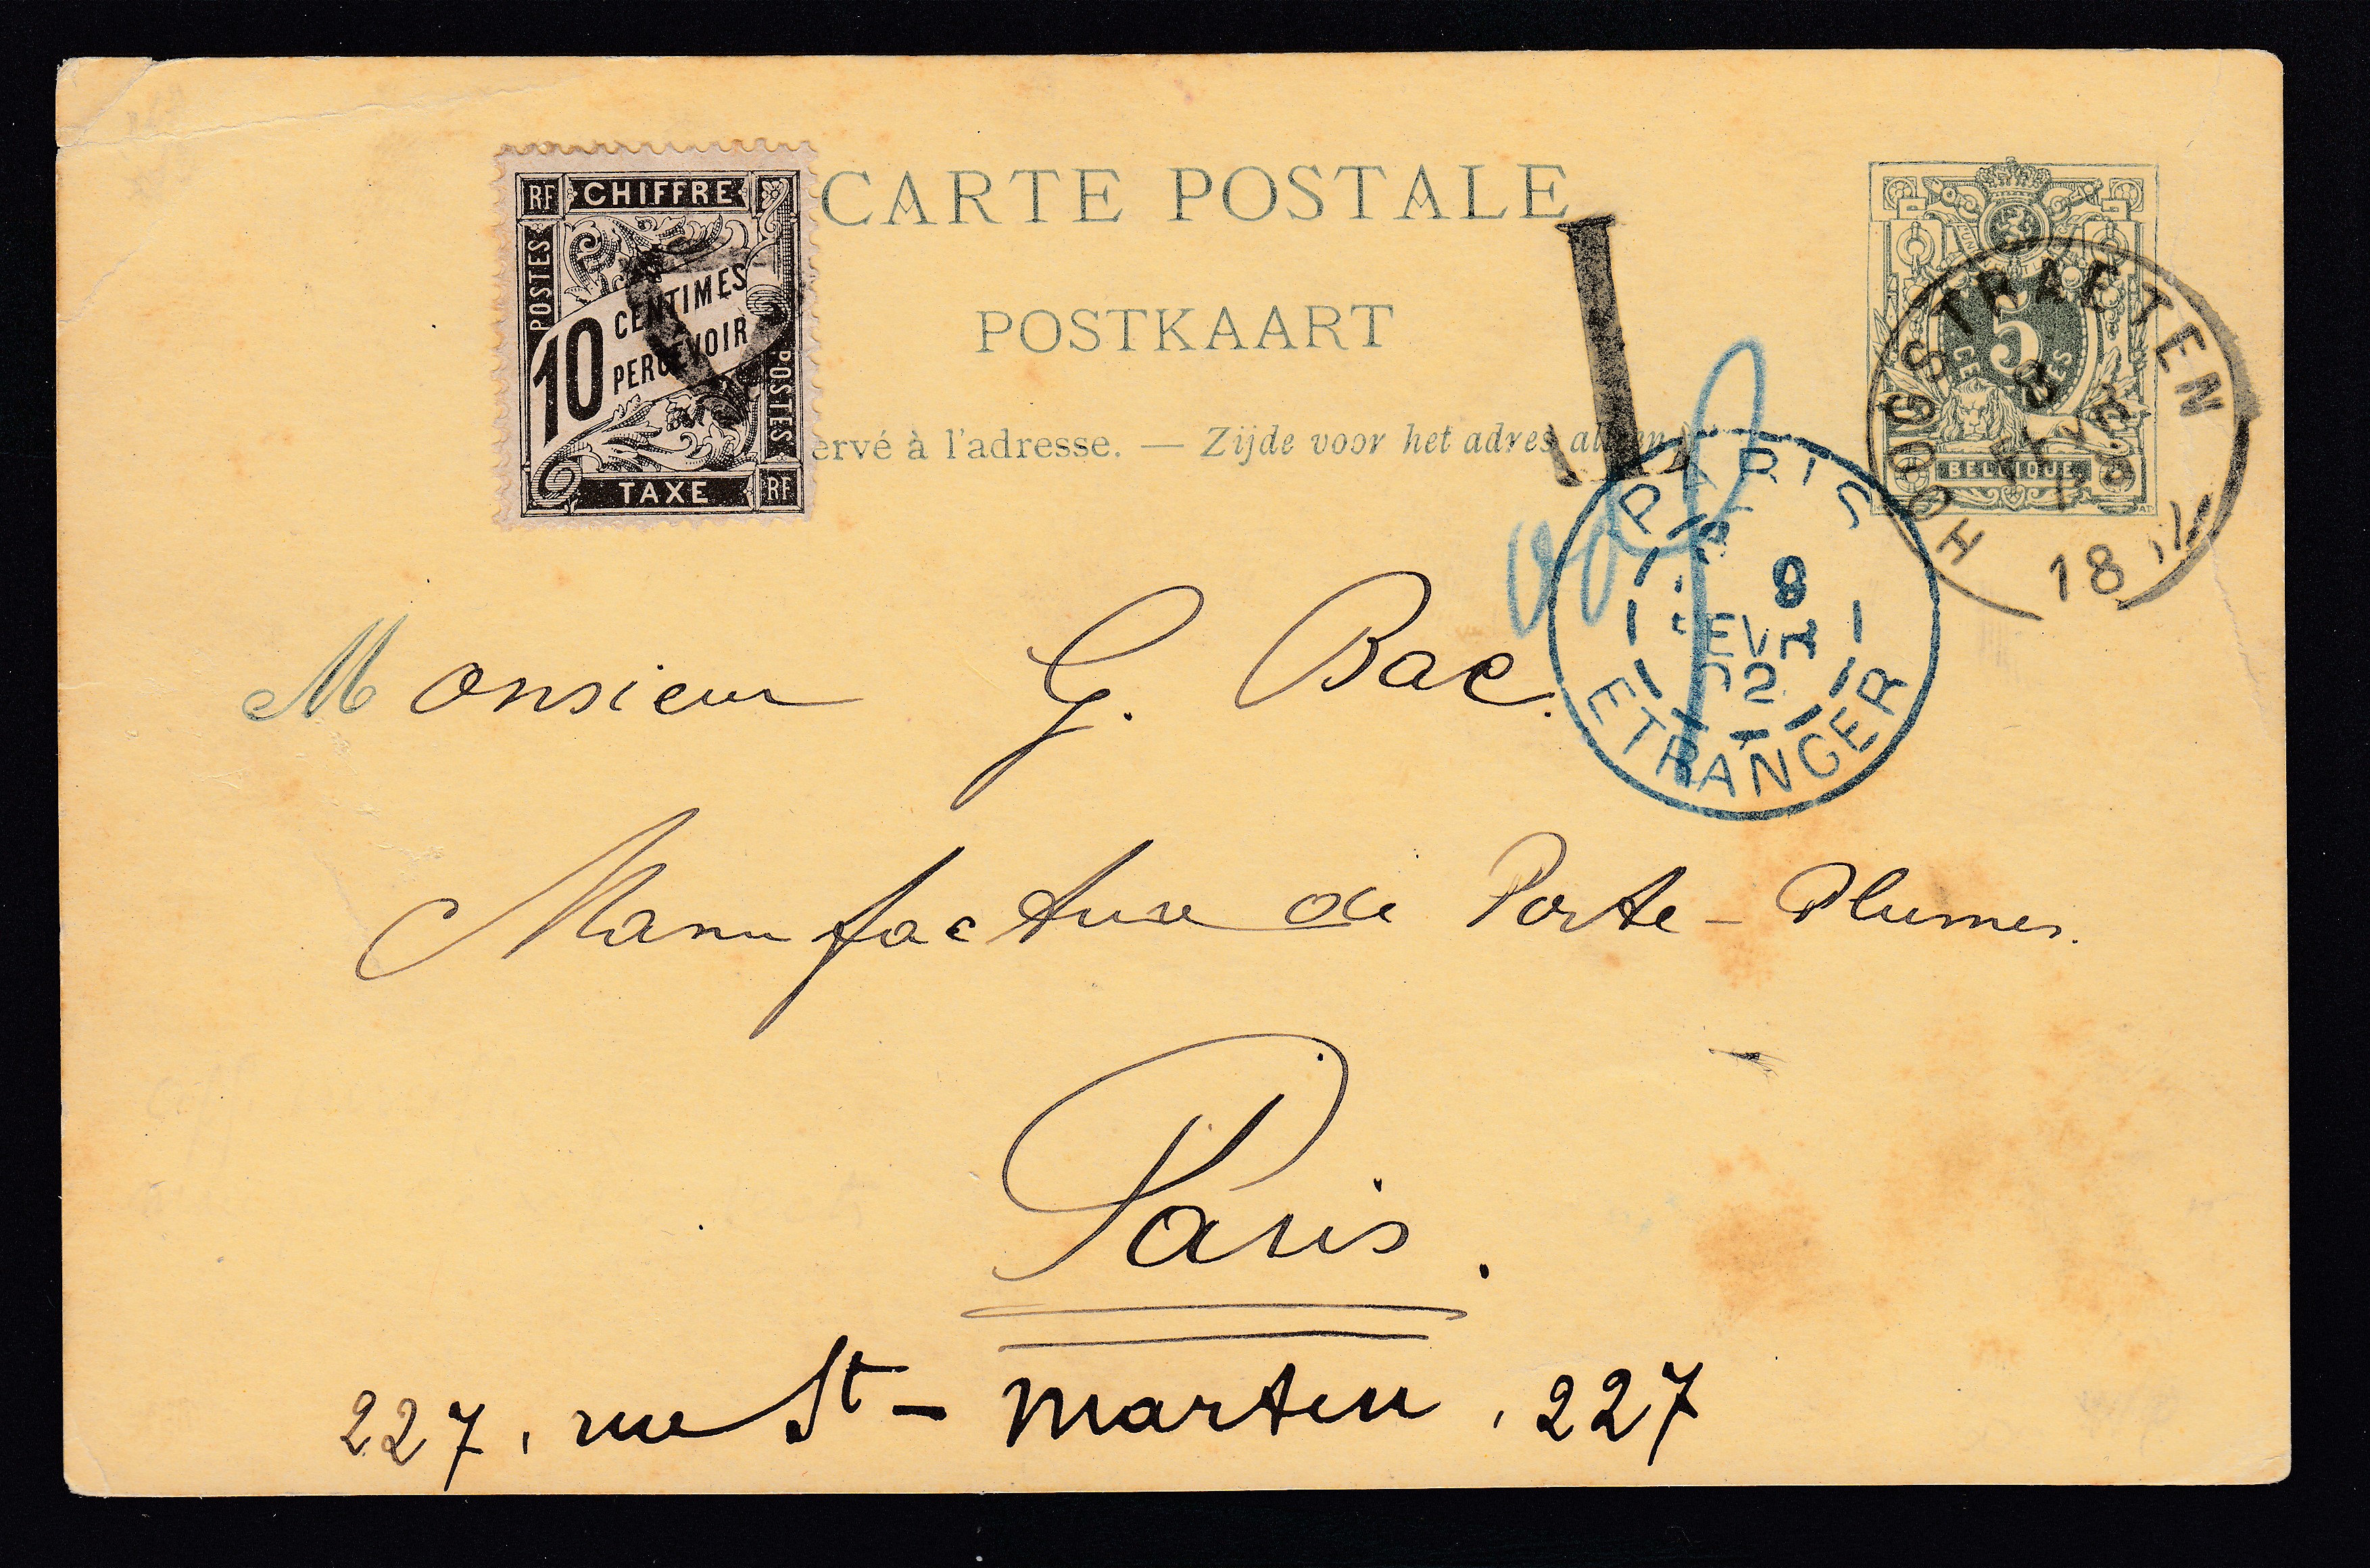 CARTE POSTALE
POSTKAART
ervé à l'adresse. — Zijde voor het adres
RF CHIFFRE
POSTES
10 CENTIMES
PERCEVOIR
POSTES
TAXE RF
5
BELGIQUE
HOOGSTRAETEN
8
FEVR
18
T
PARIS
9
FEVR
92
ETRANGER
Monsieur G. Bac.
Manufacture de Porte-Plumes.
Paris.
227, rue St-Martin, 227